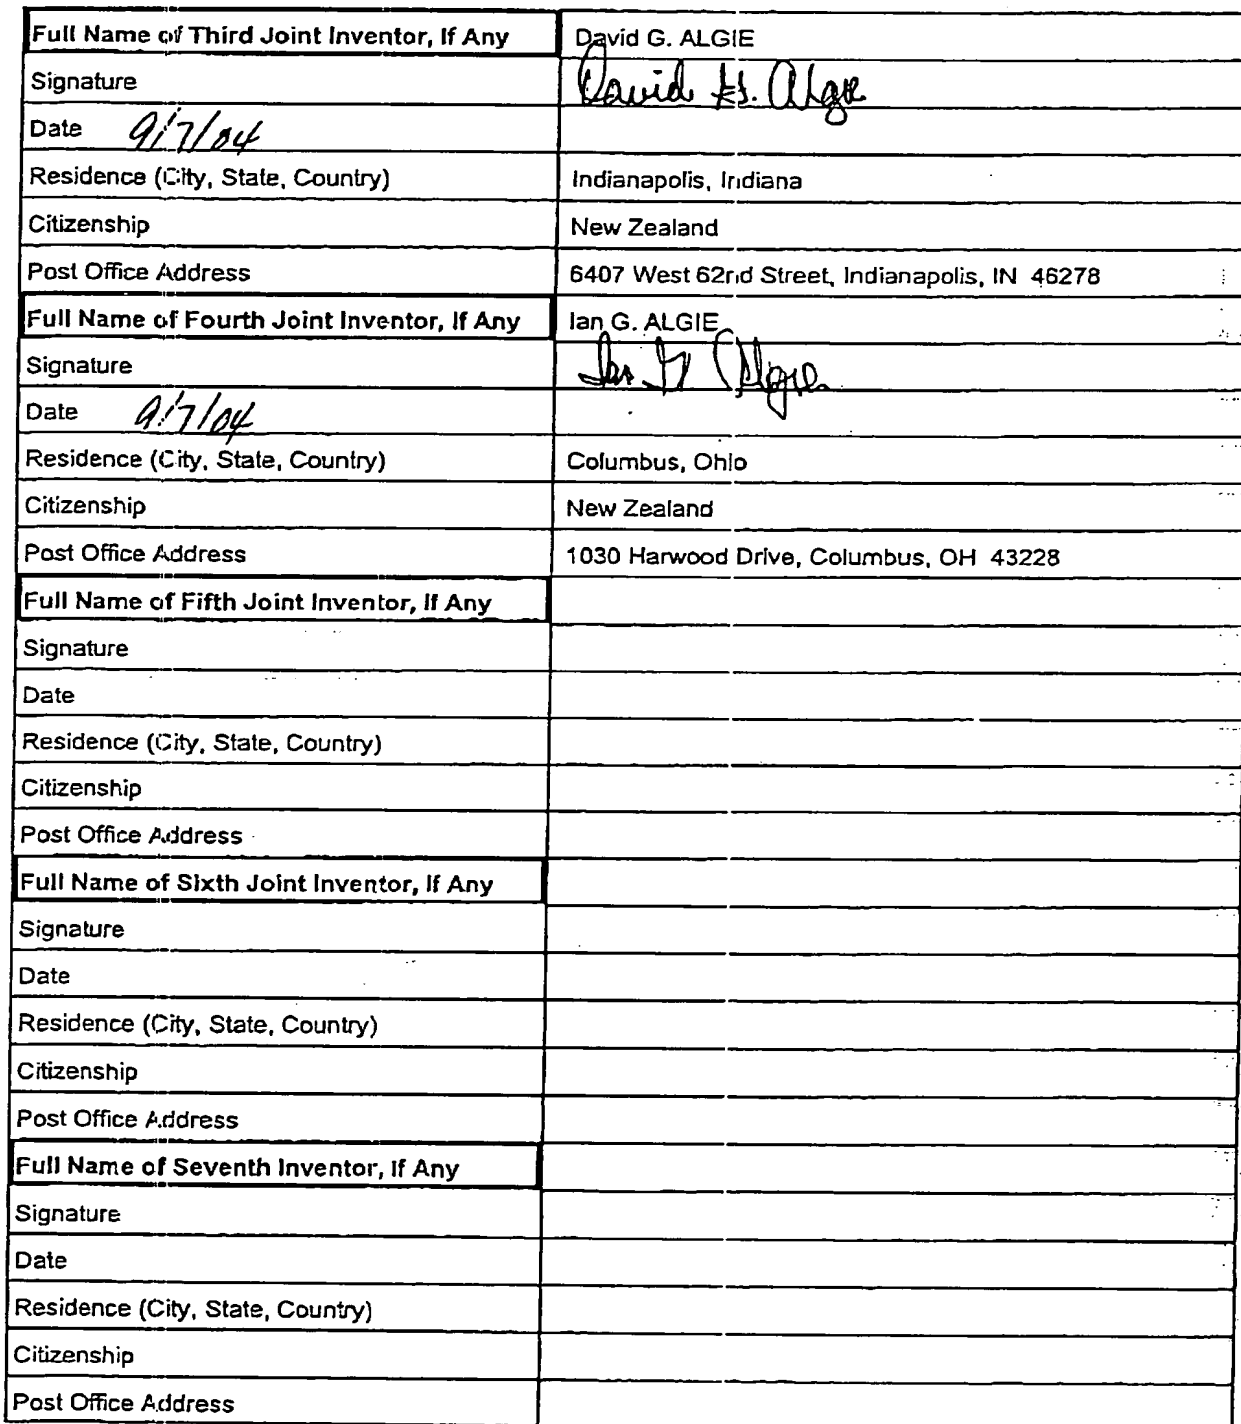 Full Name of Third Joint Inventor, If Any David G. ALGIE
Signature David G. Algie
Date 9/7/04
Residence (City, State, Country) Indianapolis, Indiana
Citizenship New Zealand
Post Office Address 6407 West 62nd Street, Indianapolis, IN 46278
Full Name of Fourth Joint Inventor, If Any Ian G. ALGIE
Signature Ian G Algie
Date 9/7/04
Residence (City, State, Country) Columbus, Ohio
Citizenship New Zealand
Post Office Address 1030 Harwood Drive, Columbus, OH 43228
Full Name of Fifth Joint Inventor, If Any
Signature
Date
Residence (City, State, Country)
Citizenship
Post Office Address
Full Name of Sixth Joint Inventor, If Any
Signature
Date
Residence (City, State, Country)
Citizenship
Post Office Address
Full Name of Seventh Inventor, If Any
Signature
Date
Residence (City, State, Country)
Citizenship
Post Office Address